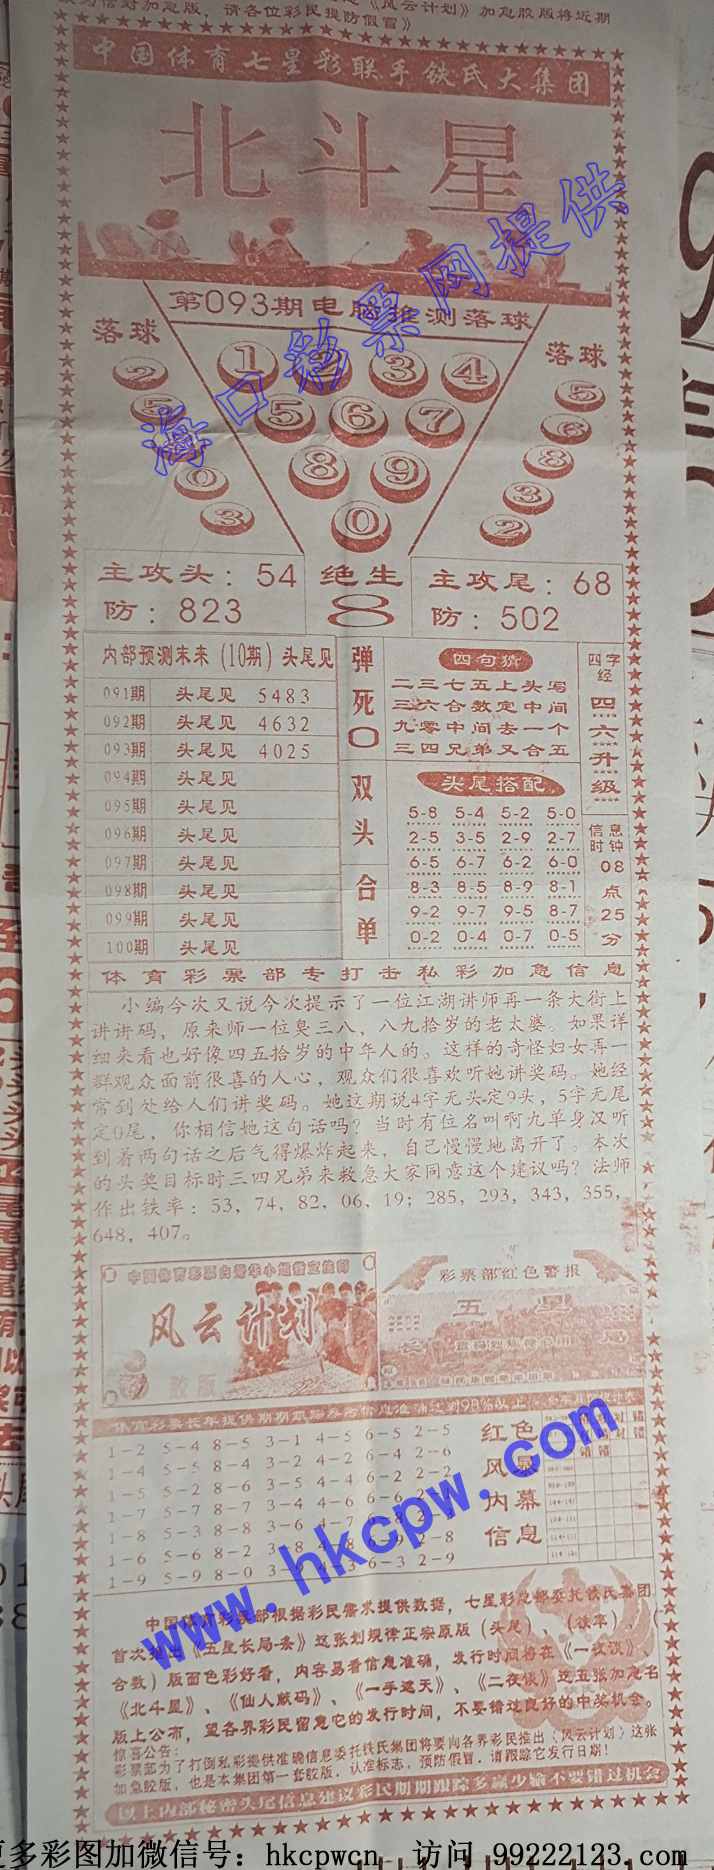 《风云计划》加急胶版将近期
请各位彩民提防假冒》
中国体育七星彩联手铁氏大集团
北斗星
海口彩票网提供
第093期电脑推测落球
落球
2
5
0
3
1 2 3 4
5 6 7
8 9
0
落球
5
6
8
3
2
主攻头：54
防：823
绝生
8
主攻尾：68
防：502
内部预测末来（10期）头尾见
091期 头尾见 5483
092期 头尾见 4632
093期 头尾见 4025
094期 头尾见
095期 头尾见
096期 头尾见
097期 头尾见
098期 头尾见
099期 头尾见
100期 头尾见
弹死0双头合单
四句猜
二三七五上头写
三六合数定中间
九零中间去一个
三四兄弟又合五
头尾搭配
5-8 5-4 5-2 5-0
2-5 3-5 2-9 2-7
6-5 6-7 6-2 6-0
8-3 8-5 8-9 8-1
9-2 9-7 9-5 8-7
0-2 0-4 0-7 0-5
四字经
四六升级
信息时钟
08点25分
体育彩票部专打击私彩加急信息
小编今次又说今次提示了一位江湖讲师再一条大街上
讲讲码，原来师一位臭三八，八九拾岁的老太婆。如果详
细来看也好像四五拾岁的中年人的。这样的奇怪妇女再一
群观众面前很喜的人心，观众们很喜欢听她讲奖码。她经
常到处给人们讲奖码。她这期说4字无头定9头，5字无尾
定0尾，你相信她这句话吗？当时有位名叫啊九单身汉听
到着两句话之后气得爆炸起来，自己慢慢地离开了。本次
的头奖目标时三四兄弟来救急大家同意这个建议吗？法师
作出铁率：53，74，82，06，19；285，293，343，355，
648，407。
风云计划
胶版
彩票部红色警报
五星
长局
1-2 5-4 8-5 3-1 4-5 6-5 2-5
1-4 5-5 8-4 3-2 4-2 6-4 2-6
1-5 5-2 8-6 3-5 4-4 6-2 2-2
1-7 5-7 8-7 3-4 4-6 6-6
1-8 5-3 8-8 3-6 4-7
1-6 5-6 8-2 3-8 4-8 6-9 2-8
1-9 5-9 8-0 6-3 2-9
红色
风暴
内幕
信息
www.hkcpw.com
中国体育彩票部根据彩民需求提供数据，七星彩总部委托铁氏集团
首次推出《五星长局一条》这张划规律正宗原版（头尾）、（铁率）、（
合数）版面色彩好看，内容易看信息准确，发行时间将在《一夜谈》
《北斗星》、《仙人献码》、《一手遮天》、《二夜谈》这五张加急名
版上公布，望各界彩民留意它的发行时间，不要错过良好的中奖机会。
惊喜公告：
彩票部为了打倒私彩提供准确信息委托铁氏集团将要向各界彩民推出《风云计划》这张
加急胶版，也是本集团第一套胶版，认准标志，预防假冒，请跟踪它发行日期！
以上内部秘密头尾信息建议彩民期期跟踪多赢少输不要错过机会
更多彩图加微信号：hkcpwcn 访问 99222123.com